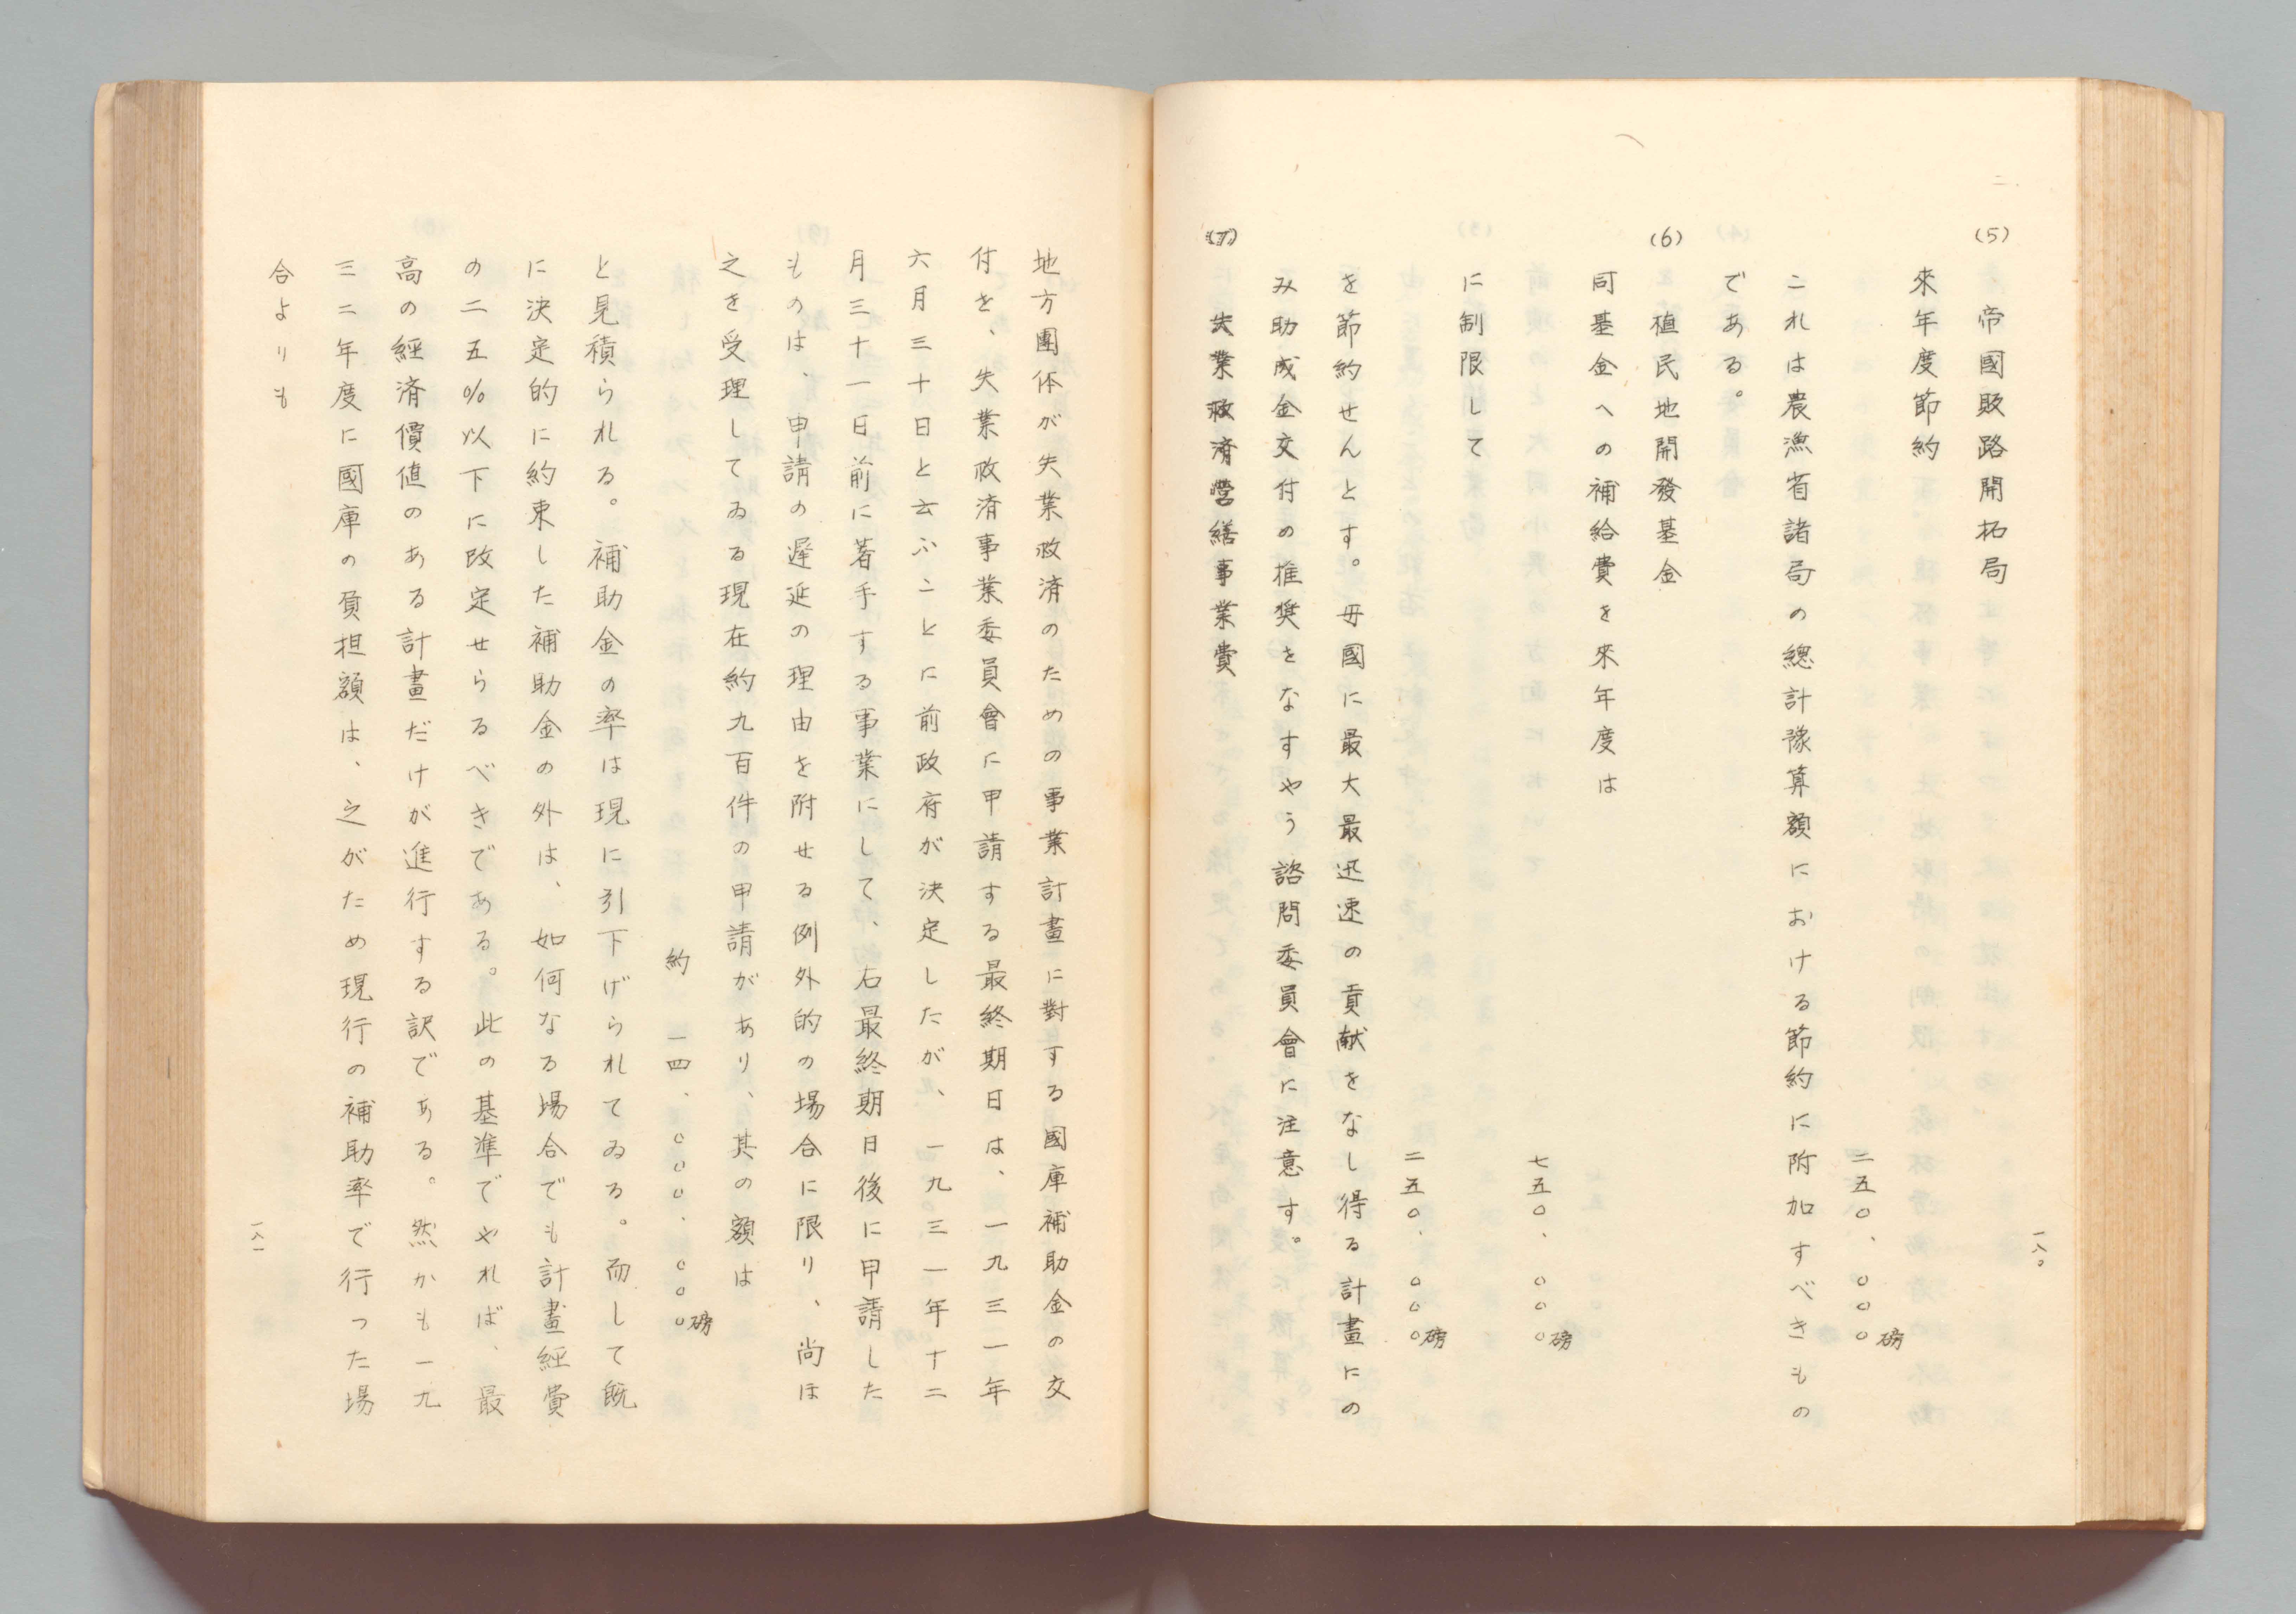 (5) 帝國販路開拓局
來年度節約
二五〇、〇〇〇磅
これは農漁省諸局の總計豫算額における節約に附加すべきもの
である。
(6) 植民地開發基金
同基金への補給費を來年度は
七五〇、〇〇〇磅
に制限して
二五〇、〇〇〇磅
を節約せんとす。母國に最大最迅速の貢献をなし得る計畫にの
み助成金交付の推奨をなすやう諮問委員會に注意す。
(7) 失業救済営繕事業費
一八〇
地方團体が失業救済のための事業計畫に對する國庫補助金の交
付を、失業救済事業委員會に申請する最終期日は、一九三一年
六月三十日と云ふことに前政府が決定したが、一九三一年十二
月三十一日前に著手する事業にして、右最終期日後に申請した
ものは、申請の遅延の理由を附せる例外的の場合に限り、尚ほ
之を受理してゐる現在約九百件の申請があり、其の額は
約 一四、〇〇〇、〇〇〇磅
と見積られる。補助金の率は現に引下げられてゐる。而して既
に決定的に約束した補助金の外は、如何なる場合でも計畫經費
の二五％以下に改定せらるべきである。此の基準でやれば、最
高の經済價値のある計畫だけが進行する訳である。然かも一九
三二年度に國庫の負担額は、之がため現行の補助率で行った場
合よりも
一八一